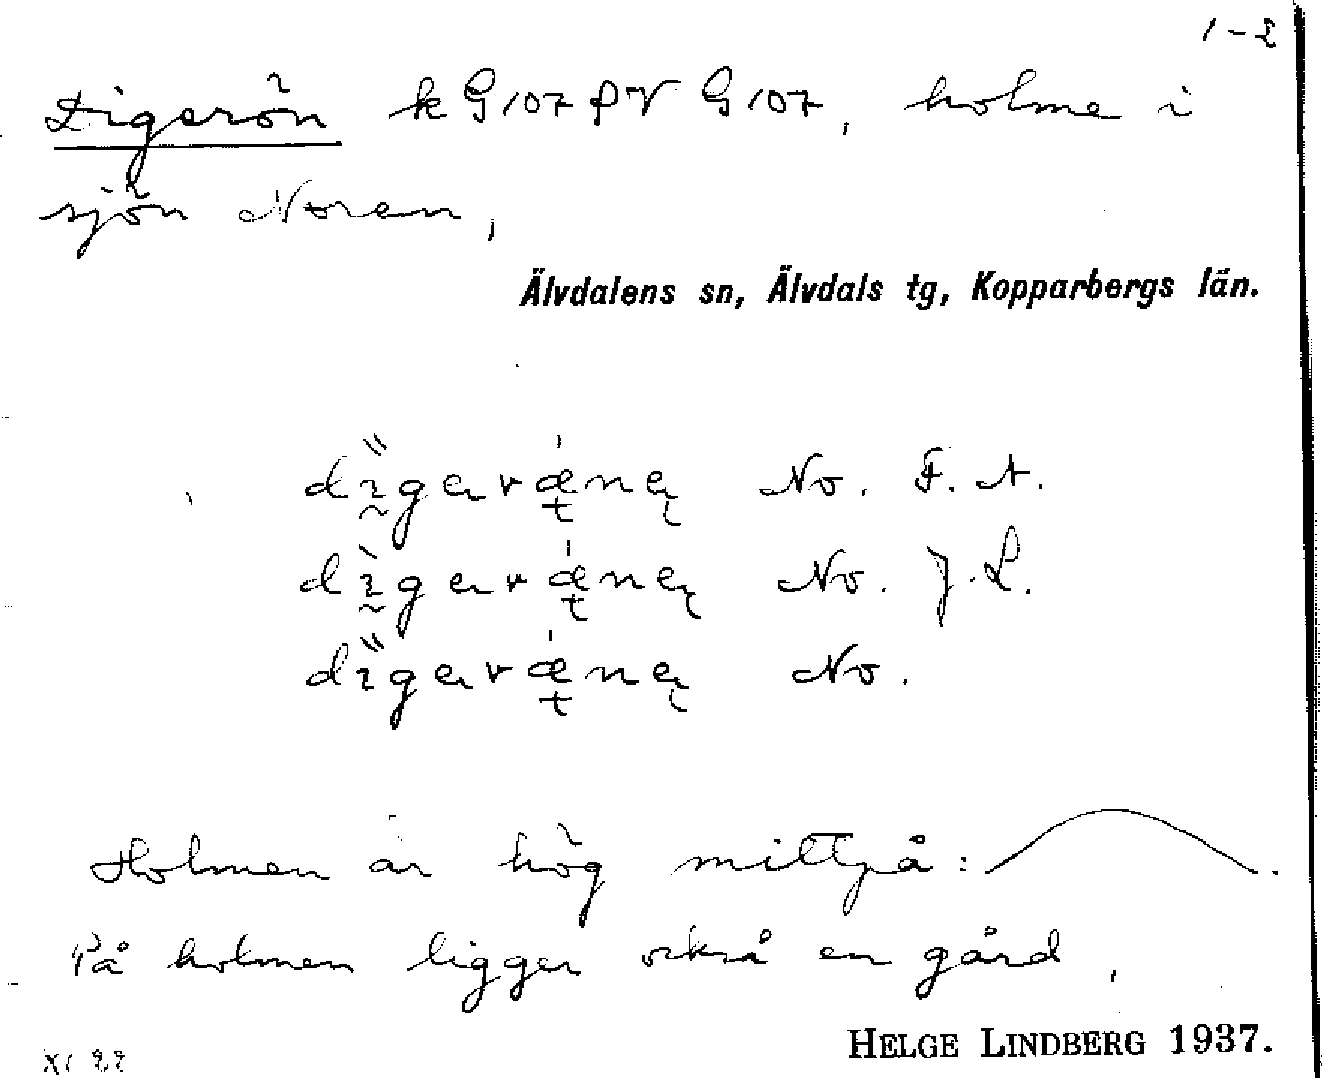 1-2
Digerön k G 107 p V G 107, holme i
sjön Noren,
Älvdalens sn, Älvdals tg, Kopparbergs län.
No. F. A.
No. J. L.
No.
Holmen är hög mittpå: .
På holmen ligger också en gård.
HELGE LINDBERG 1937.